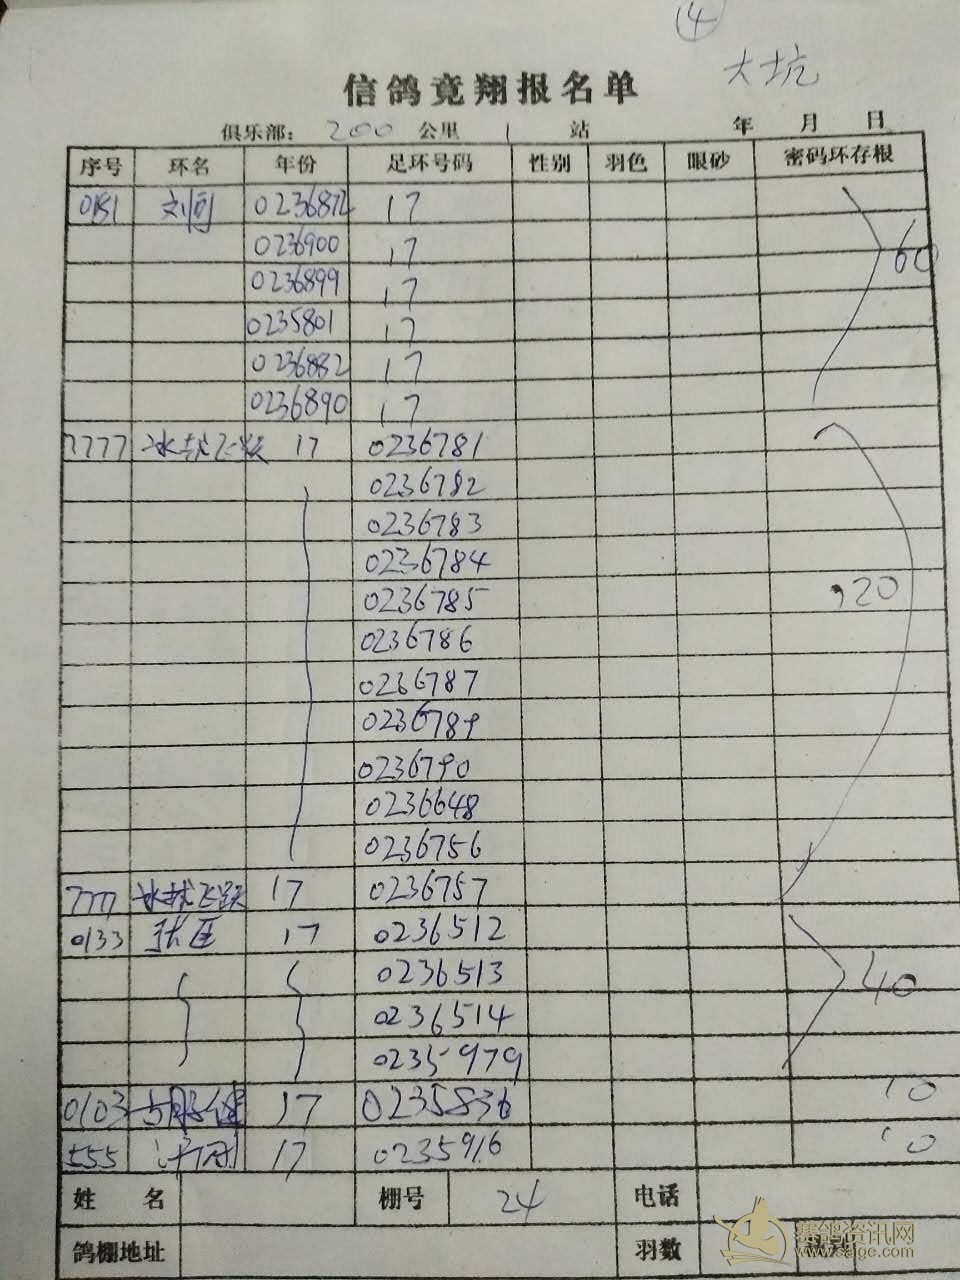 14
大坑
信鸽竞翔报名单
俱乐部: 200 公里 1 站 年 月 日
序号 环名 年份 足环号码 性别 羽色 眼砂 密码环存根
0151 0236872 17
0236900 17
60
0236899 17
0235801 17
0236882 17
0236890 17
7777 17 0236781
0236782
0236783
0236784
0236785
20
0236786
0236787
0236789
0236790
0236648
0236756
7777 冰城飞跃 17 0236757
0133 张臣 17 0236512
0236513
40
0236514
0235979
0103 17 0235836 10
555 17 0235916 10
姓名 棚号 24 电话
鸽棚地址 羽数
赛鸽资讯网
www.saige.com